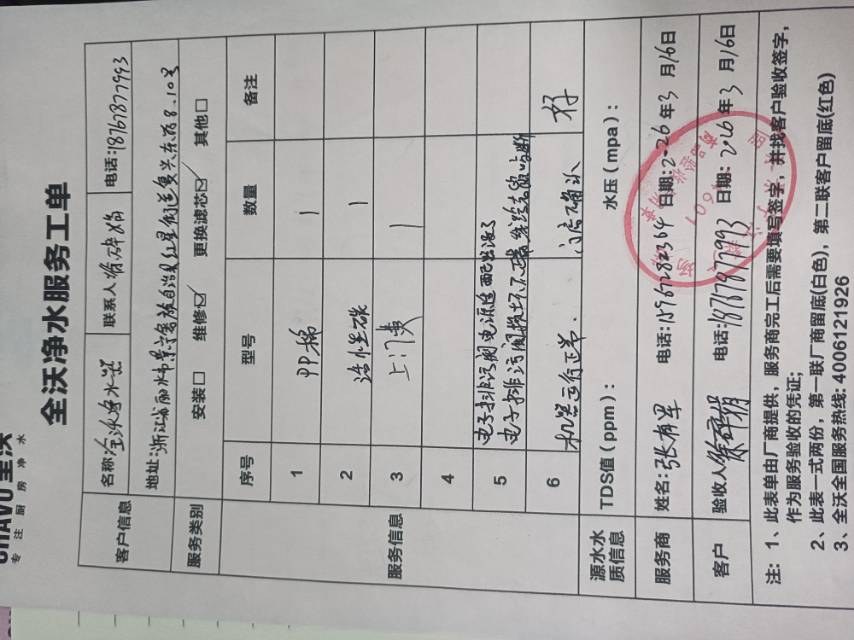 专注厨房净水
全沃净水服务工单
客户信息 名称:全沃净水器 联系人 电话:18767877993
地址:浙江省丽水市景宁畲族自治县红星街道复兴东路8.10号
服务类别 安装□ 维修☑ 更换滤芯☑ 其他□
服务信息 序号 型号 数量 备注
1 PP棉 1
2 活性炭 1
3 上门费 1
4
5 电子排污阀电源适配出漏了
电子排污阀损坏
6 机器运行正常. 好
源水水质信息 TDS值(ppm): 水压(mpa):
服务商 姓名:张有军 电话:15967282364 日期:2026年3月16日
客户 验收人 电话:18767877993 日期:2026年3月16日
注: 1、此表单由厂商提供,服务商完工后需要填写签字,并找客户验收签字,
作为服务验收的凭证;
2、此表一式两份,第一联厂商留底(白色),第二联客户留底(红色)
3、全沃全国服务热线:4006121926